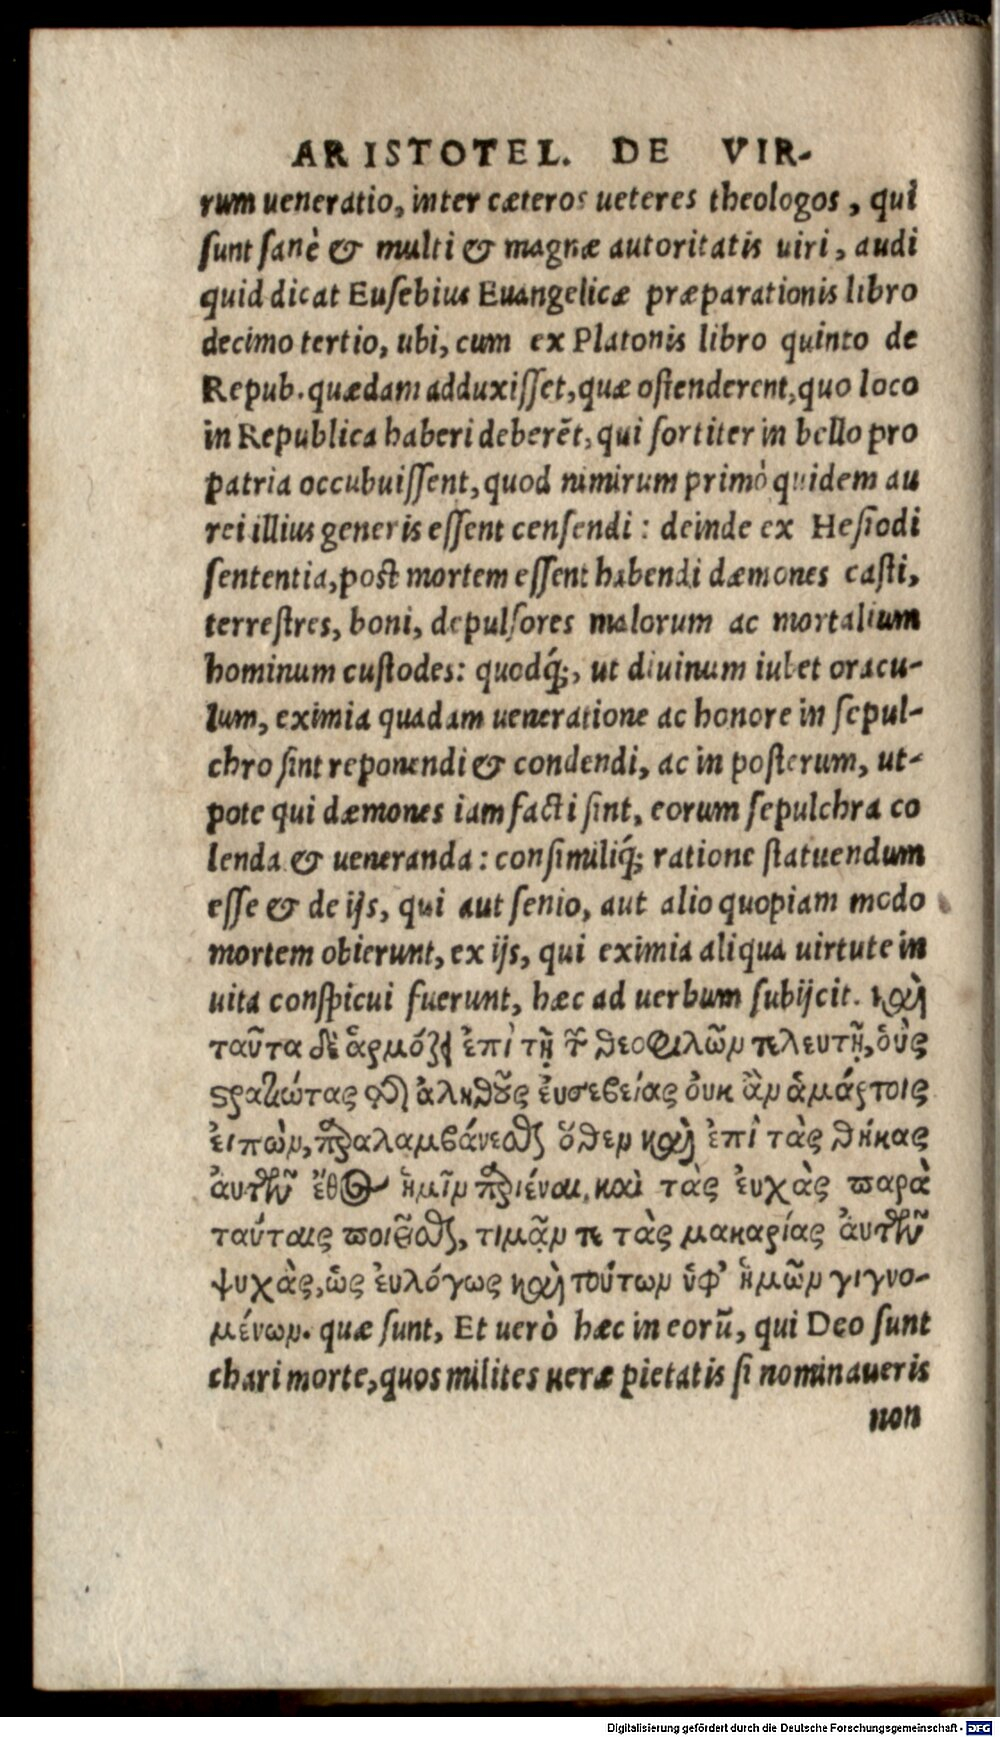 ARISTOTEL. DE VIR-
rum ueneratio, inter cæteros ueteres theologos, qui
ſunt ſanè & multi & magnæ autoritatis uiri, audi
quid dicat Euſebius Euangelicæ præparationis libro
decimo tertio, ubi, cum ex Platonis libro quinto de
Repub. quædam adduxiſſet, quæ oſtenderent, quo loco
in Republica haberi deberẽt, qui fortiter in bello pro
patria occubuiſſent, quod nimirum primò quidem au
rei illius generis eſſent cenſendi: deinde ex Heſiodi
ſententia, poſt mortem eſſent habendi dæmones caſti,
terreſtres, boni, depulſores malorum ac mortalium
hominum cuſtodes: quodq́;, ut diuinum iubet oracu-
lum, eximia quadam ueneratione ac honore in ſepul-
chro ſint reponendi & condendi, ac in poſterum, ut-
pote qui dæmones iam facti ſint, eorum ſepulchra co
lenda & ueneranda: conſimiliq́; ratione ſtatuendum
eſſe & de ijs, qui aut ſenio, aut alio quopiam modo
mortem obierunt, ex ijs, qui eximia aliqua uirtute in
uita conſpicui fuerunt, hæc ad uerbum ſubijcit. καὶ
ταῦτα δὲ ἁρμόζει ἐπὶ τῇ τῶν θεοφιλῶν τελευτῇ, ὁὺς
ϛρατιώτας τῆς ἀληθοῦς ἐυσεβείας ὀυκ ἂν ἁμάρτοις
ἐιπὼν, παραλαμβάνεσθαι ὅθεν καὶ ἐπὶ τὰς θήκας
ἀυτῶν ἔθος ἡμῖν παριέναι, καὶ τὰς ἐυχὰς παρὰ
ταύταις ποιεῖσθαι, τιμᾷν τε τὰς μακαρίας ἀυτῶν
ψυχὰς, ὡς ἐυλόγως καὶ τούτων ὑφ' ἡμῶν γιγνο-
μένων. quæ ſunt, Et uerò hæc in eorũ, qui Deo ſunt
chari morte, quos milites ueræ pietatis ſi nominaueris
non
Digitalisierung gefördert durch die Deutsche Forschungsgemeinschaft - DFG